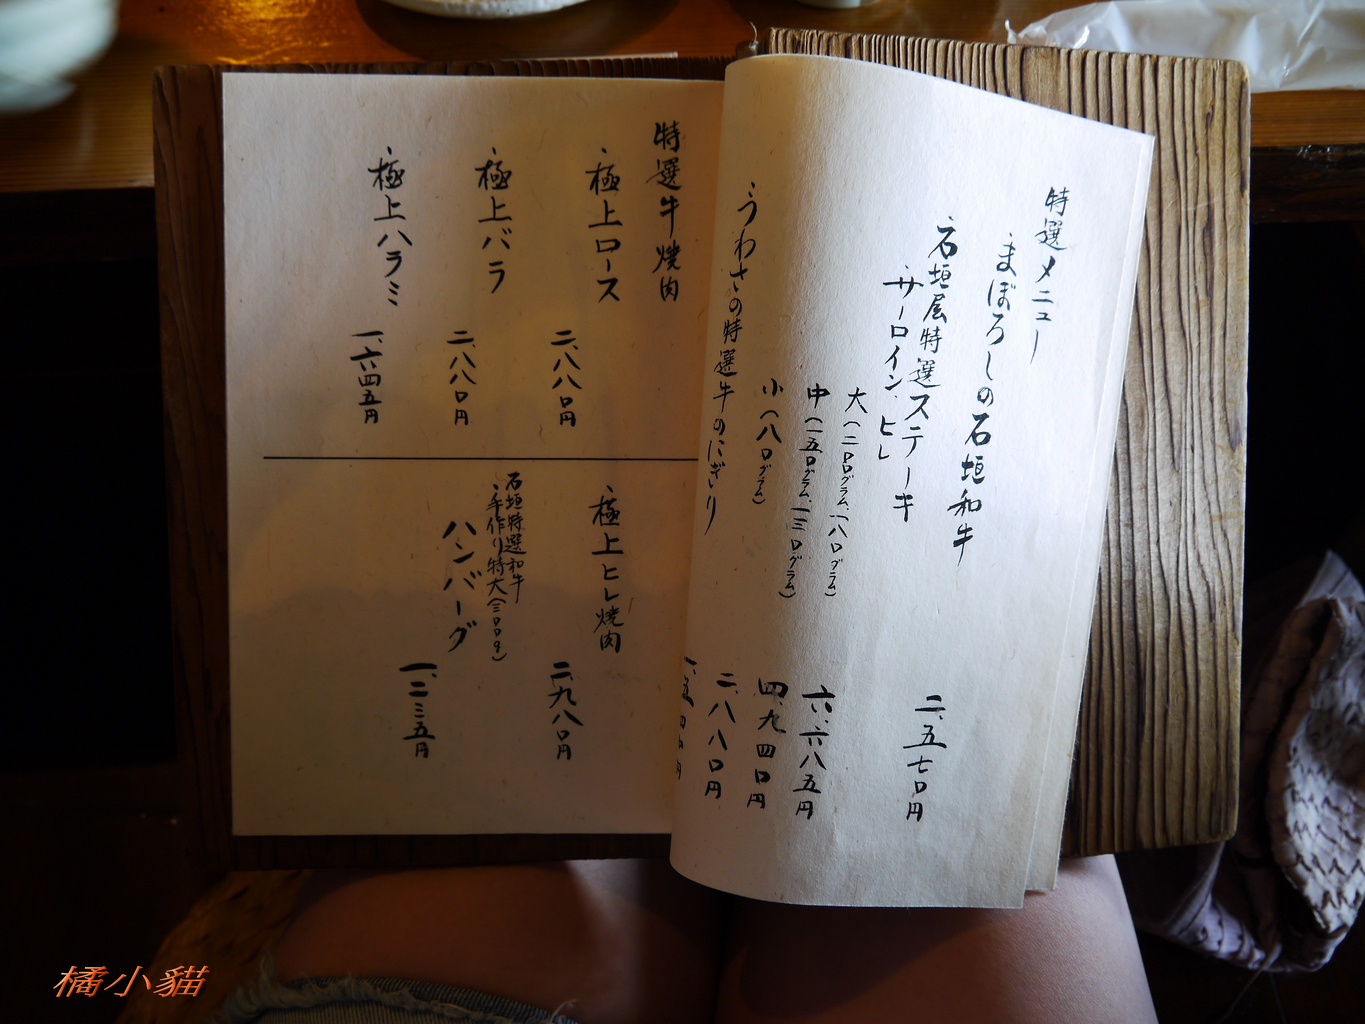 特選メニュー
まぼろしの石垣和牛
石垣屋特選ステーキ
二、五七〇円
サーロイン、ヒレ
大(二〇〇グラム、一八〇グラム)
六、六八五円
中(一五〇グラム、一三〇グラム)
四、九四〇円
小(八〇グラム)
二、八八〇円
うわさの特選牛のにぎり
特選牛焼肉
極上ロース
二、八八〇円
極上バラ
二、八八〇円
極上ハラミ
一、六四五円
極上ヒレ焼肉
二、九八〇円
石垣特選和牛
手作り特大(三〇〇g)
ハンバーグ
一、二三五円
橘小貓